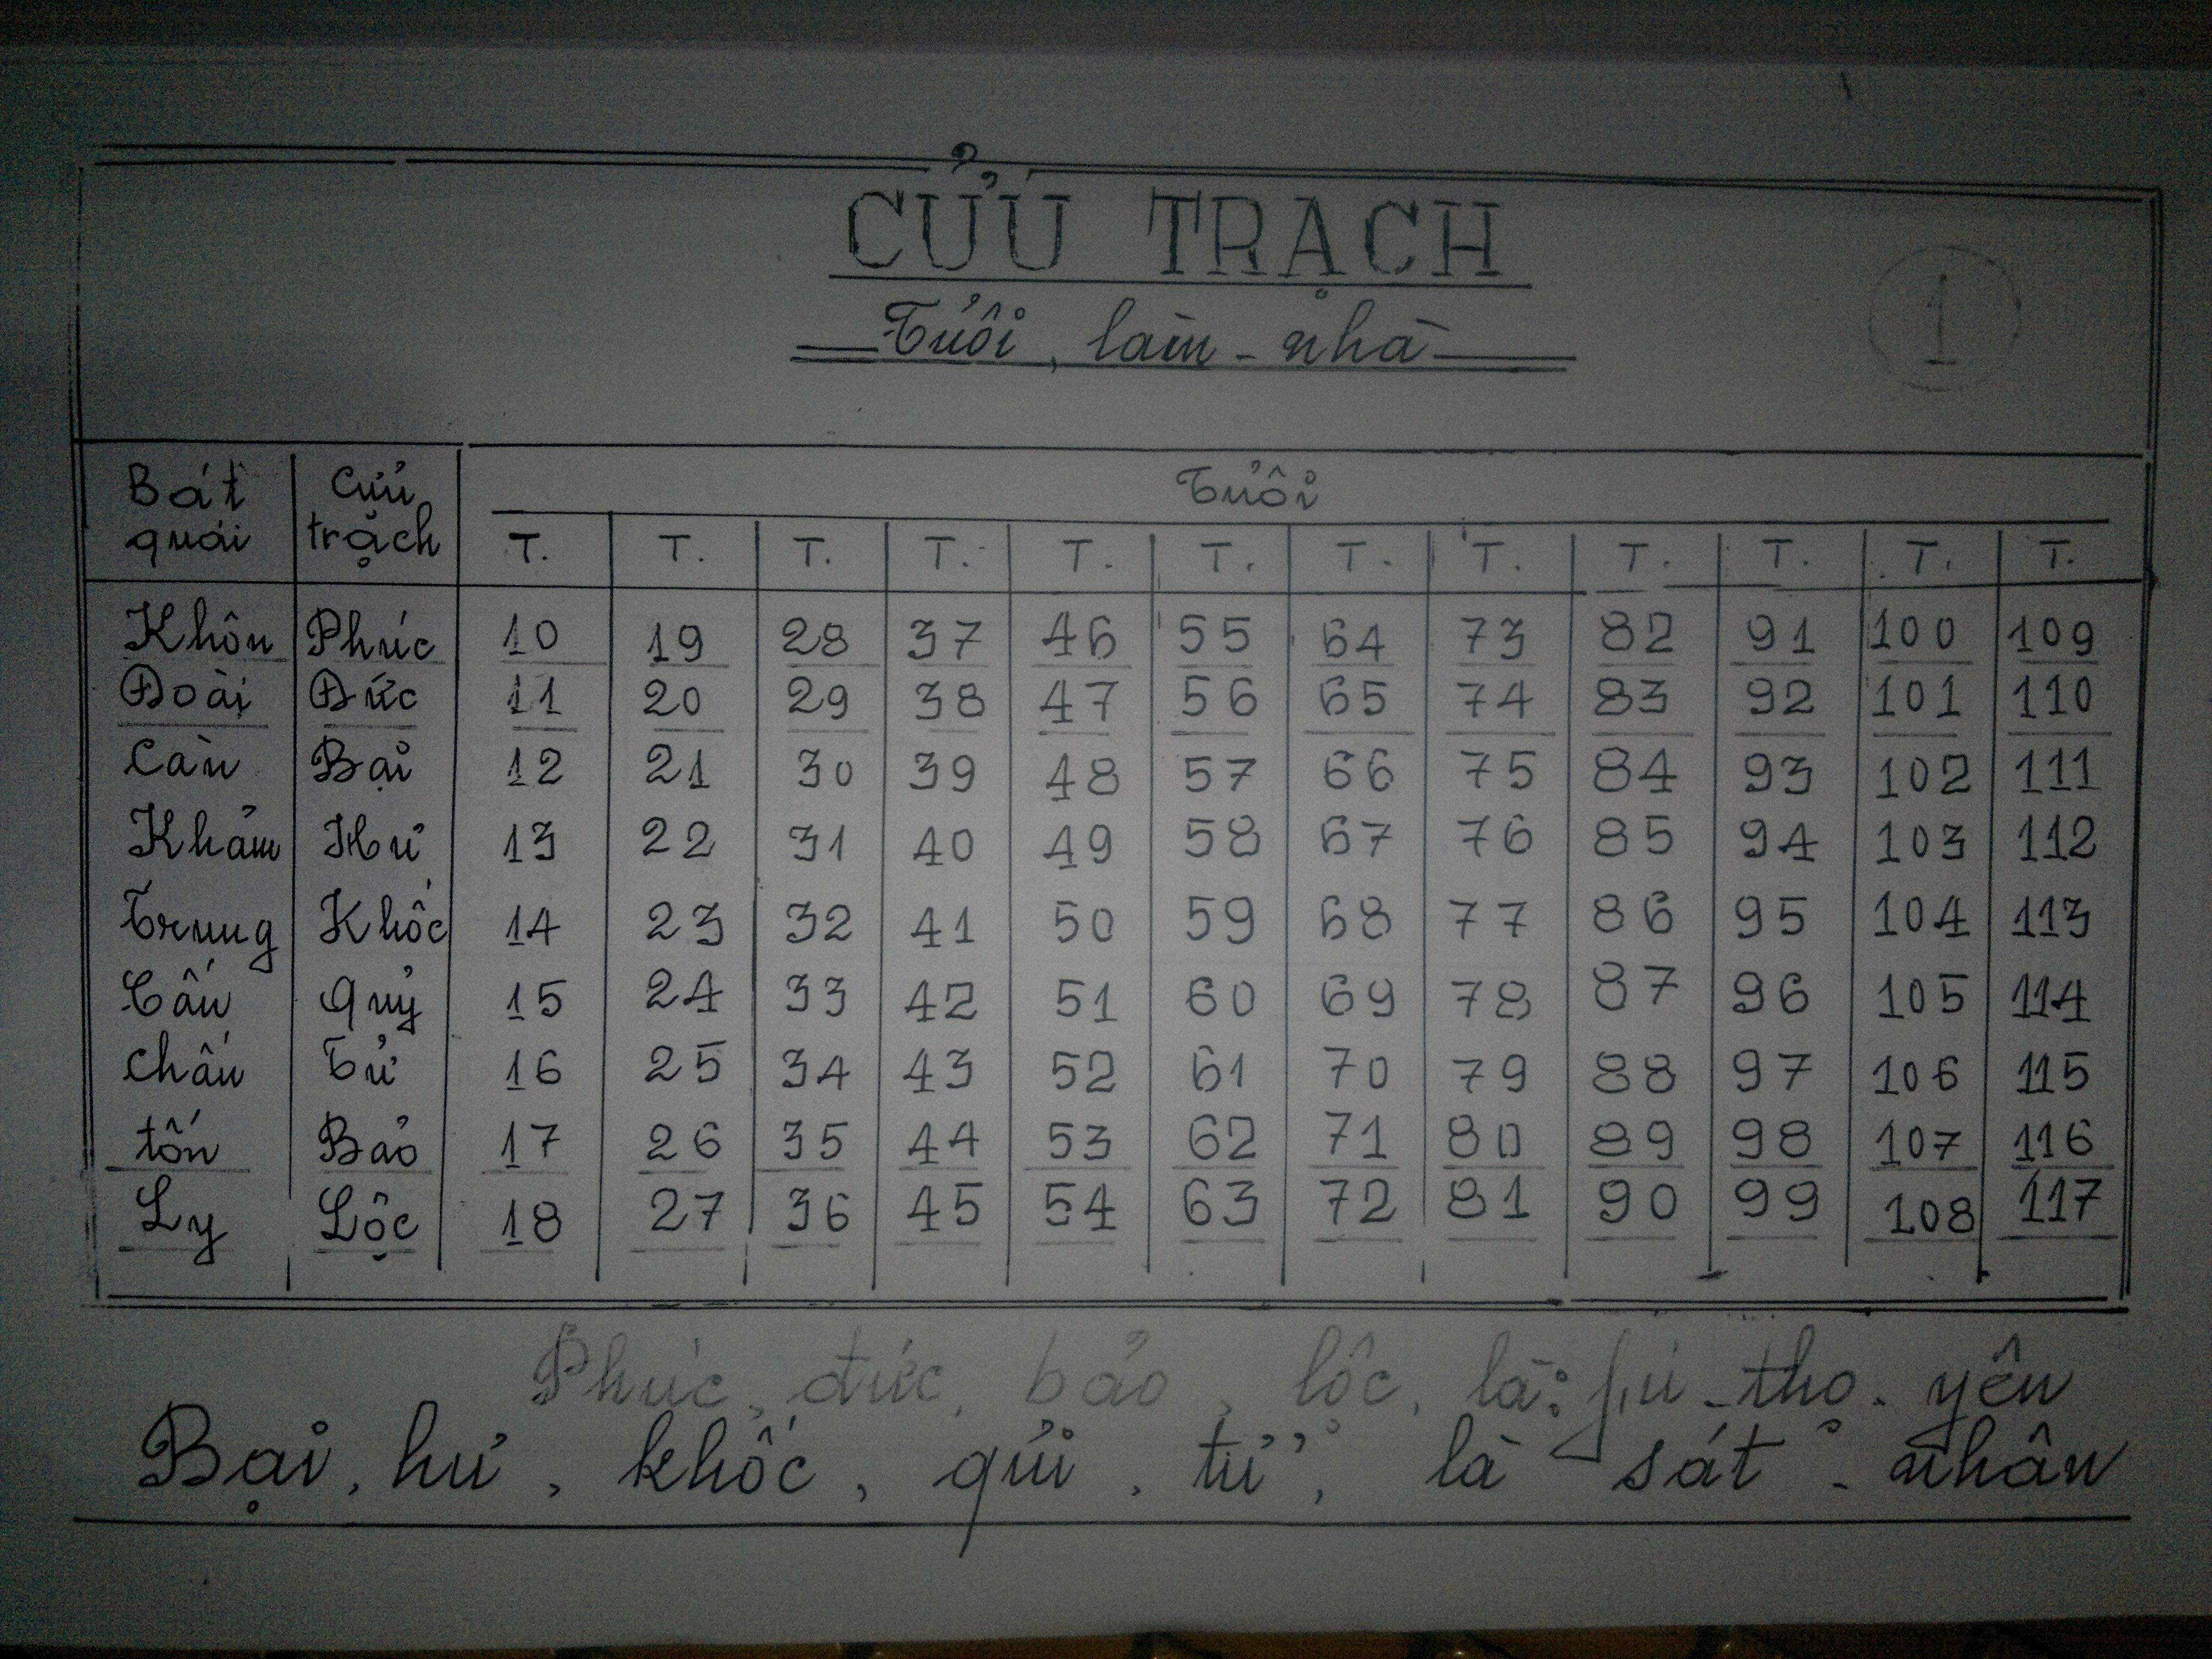 CỬU TRẠCH
1
Tuổi, làm - nhà
Bát quái | Cửu trạch | Tuổi
T. T. T. T. T. T. T. T. T. T. T. T.
Khôn Phúc 10 19 28 37 46 55 64 73 82 91 100 109
Đoài Đức 11 20 29 38 47 56 65 74 83 92 101 110
Càn Bại 12 21 30 39 48 57 66 75 84 93 102 111
Khảm Hư 13 22 31 40 49 58 67 76 85 94 103 112
Trung Khốc 14 23 32 41 50 59 68 77 86 95 104 113
Cấn Quỷ 15 24 33 42 51 60 69 78 87 96 105 114
Chấn Tử 16 25 34 43 52 61 70 79 88 97 106 115
tốn Bảo 17 26 35 44 53 62 71 80 89 98 107 116
Ly Lộc 18 27 36 45 54 63 72 81 90 99 108 117
Phúc, đức, bảo, lộc, là: - thọ - yên
Bại, hư, khốc, qủi, tử, là sát - nhân